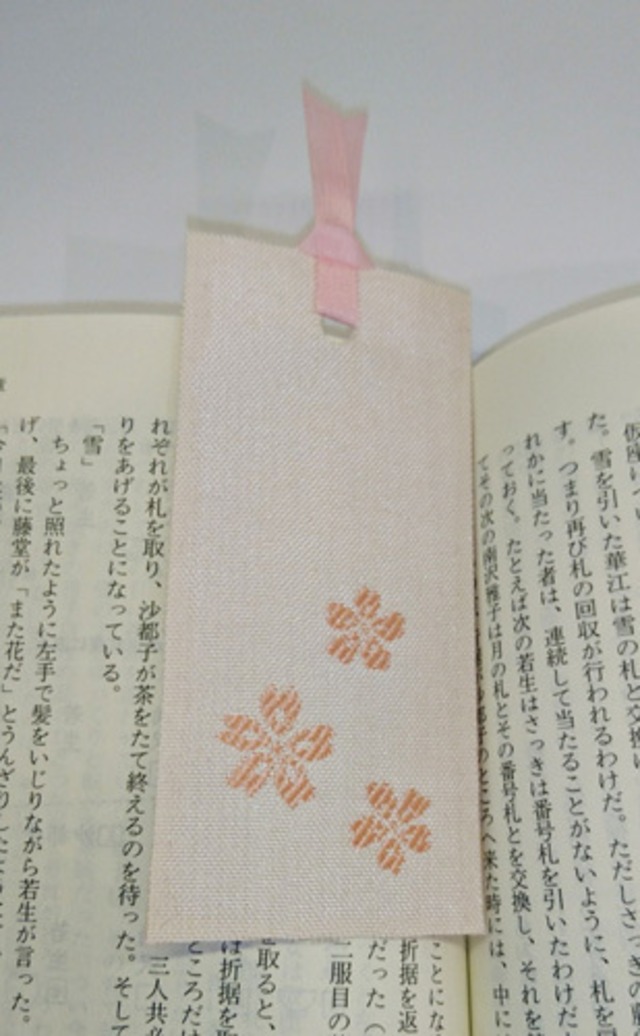 仮座
た。雪を引いた華江は雪の札と交換
す。つまり再び札の回収が行われるわけだ。ただしさっきの
れかに当たった者は、連続して当たることがないように、札を
っておく。たとえば次の若生はさっきは番号札を引いたわけだ
てその次の南沢雅子は月の札とその番号札とを交換し、それを
ところへ来た時には、中に
ことにな
折据を返
だった（
二服目の
を取ると、
は折据を
ところだけ
三人共
れぞれが札を取り、沙都子が茶をたて終えるのを待った。そして
りをあげることになっている。
「雪」
ちょっと照れたように左手で髪をいじりながら若生が言った。
げ、最後に藤堂が「また花だ」とうんざりしたような